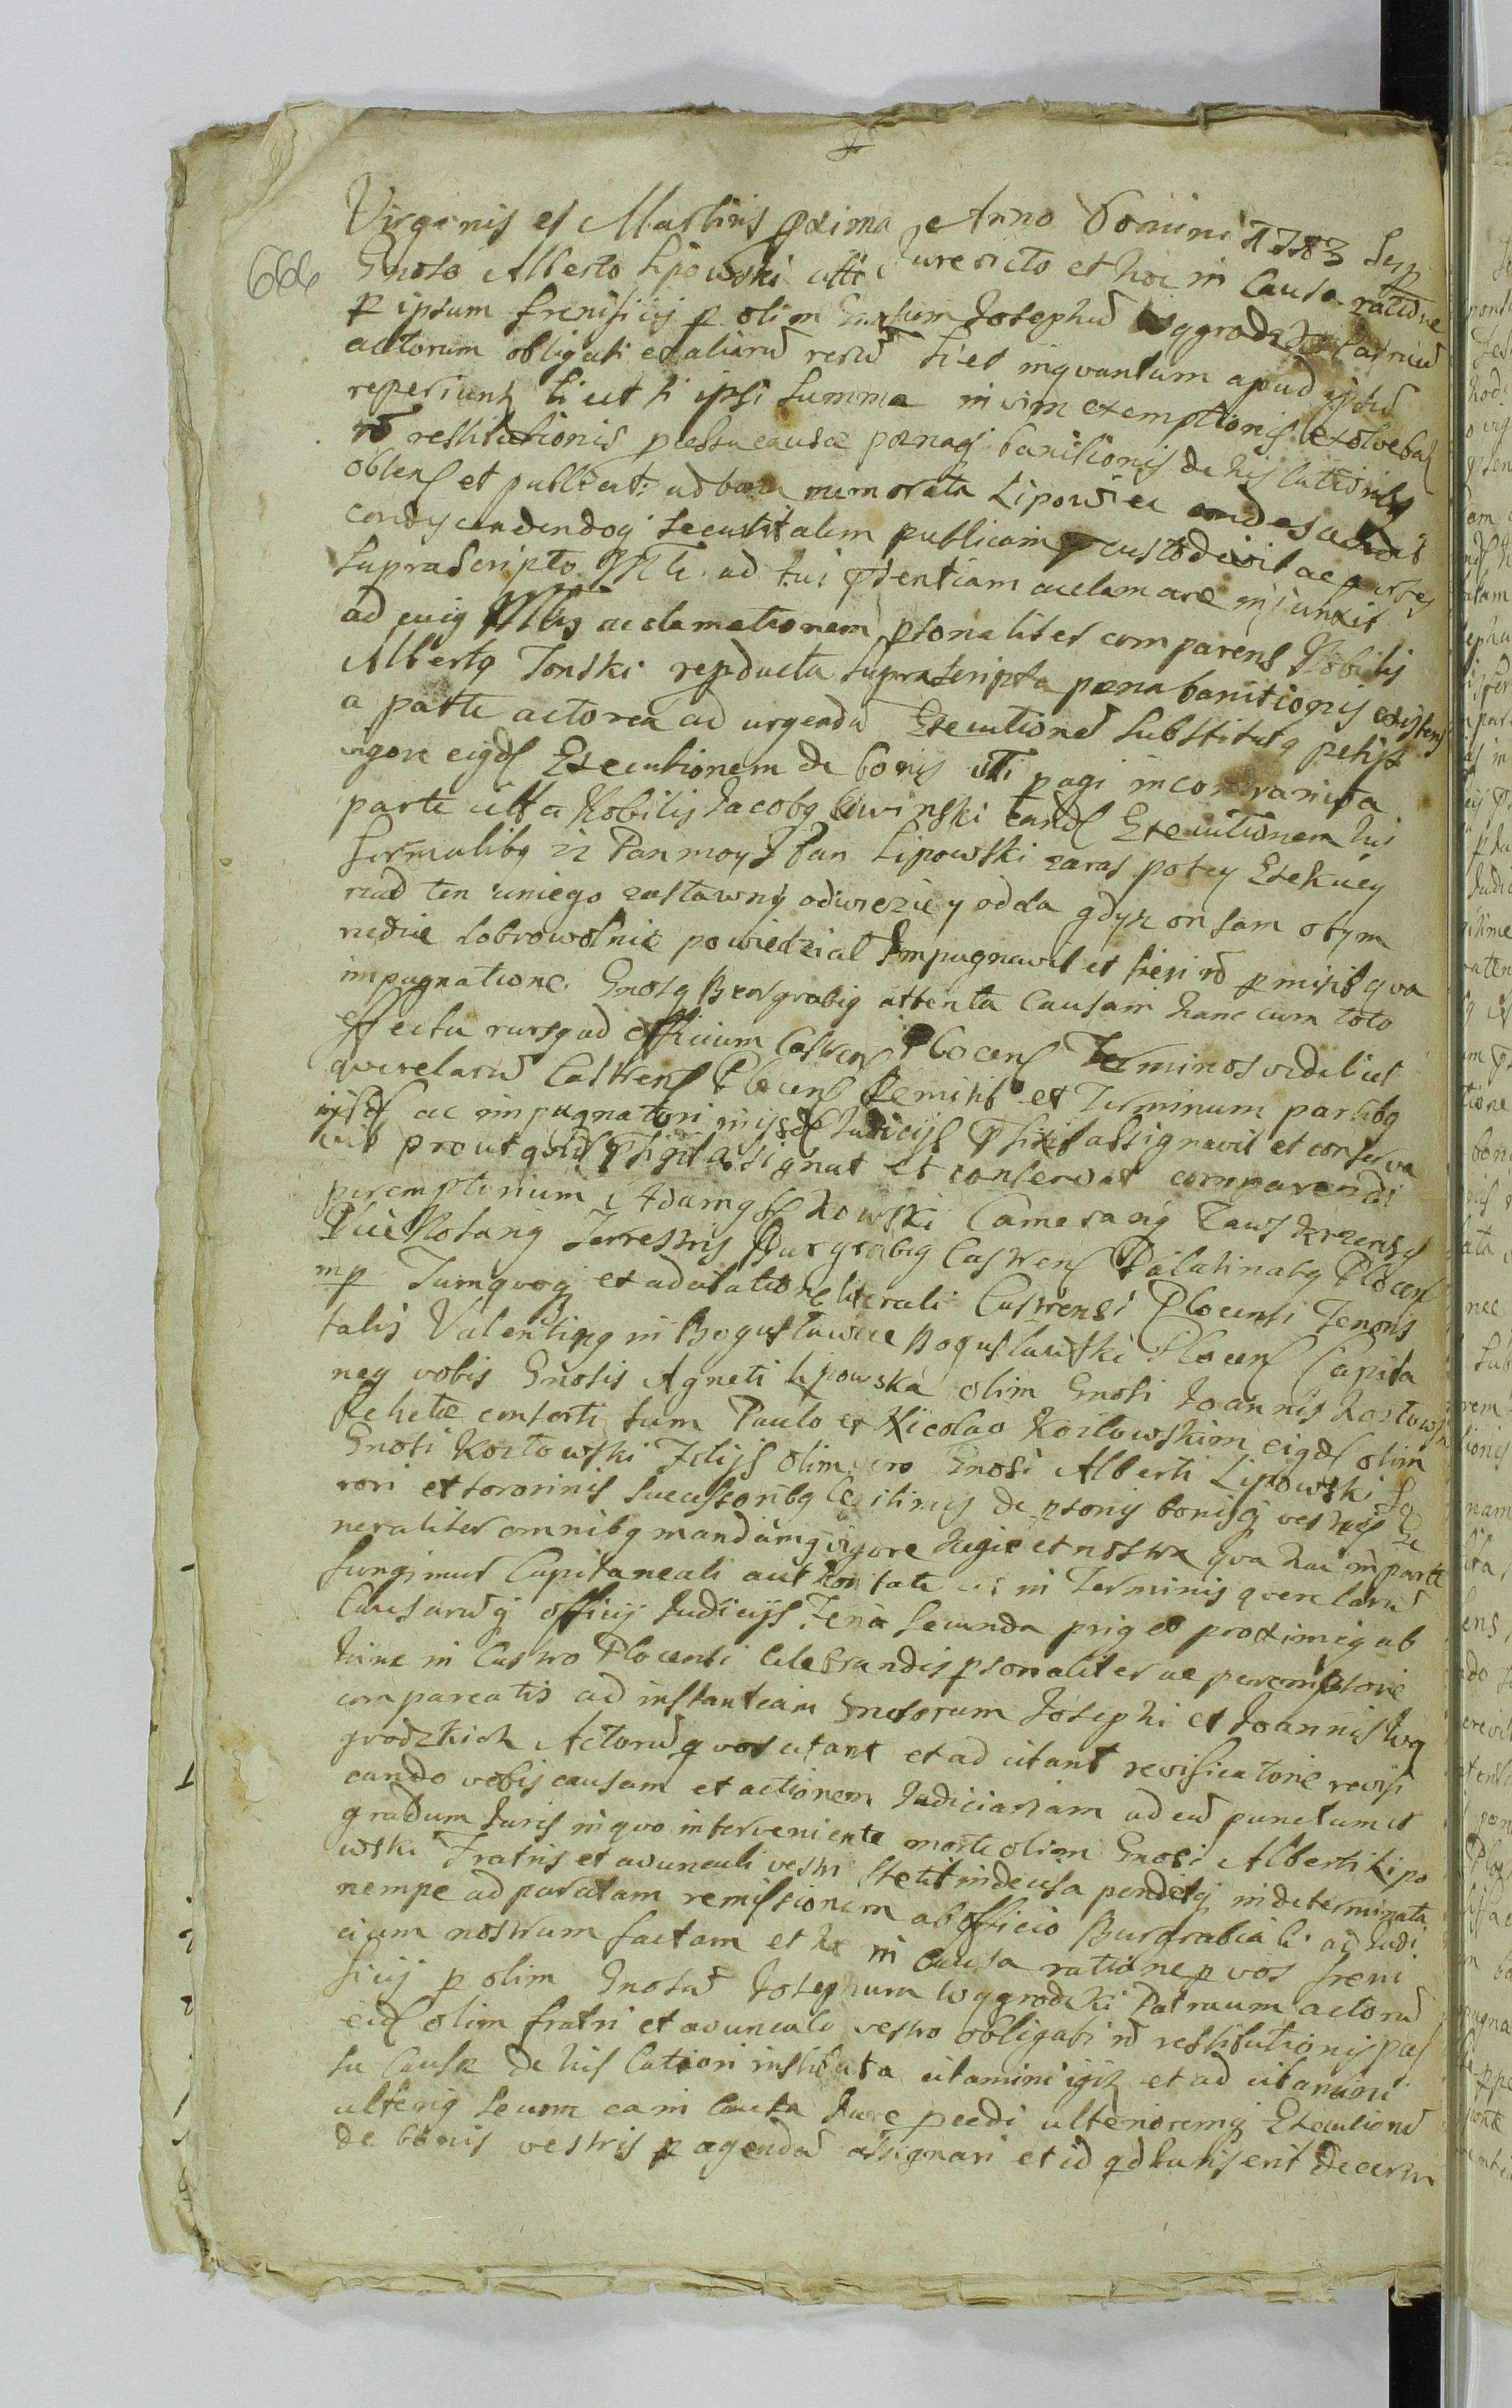 666
Virginis et Martiris proxima Anno Domini 1783 Sup
Gnoso Alberto Lipowski citti Jurevicto et hoc in Causa ratione
p ipsum frenisicij p olim Gnosum Josephum Wygrodzki Patruū
actorum obligati et aliarū rerū si et inqvantum apud ipsū
reperiunt sicut si ipsi summa in vim exemptionis exolvebat
nō restitutionis passu causæ pænaq banitionis de his lationibq
obtens et publicat: ad bona memorata Lipowiec condescendit
condyscendendoq securitatem publicam custodivit ac partes
suprascripto Mtli ad sui pntentiam acclamare injunxit
ad cuiq Mtlis acclamationem psonaliter comparens Nobilis
Albertq Tonski repducta suprascripta pœna banitionis existens
a parte actorea ad urgendā Executionē substitutq petijt
vigore eiqd Executionem de bonis citti pagi in contraria
parte citta Nobilis Jacobq eand Executionem his
formalibq iz Pan moy J Pan Lipowski zaras potey Exekucy
rząd ten u niego zastawny odwiezie y odda gdyz on sam o tym
nedwie dobrowolnie powiedział Impugnavit et fieri nō pmisit qva
impugnatione Gnosq Burgrabiq attenta Causam hanc cum toto
effectu rursq ad officium Castren Plocens Terminos videlicet
qverelarū Castrens Plocens Remisit et Terminum partibq
ijsd ac impugnatori in ijsd Judicijs pfixit assignavit et conserva
vit prout qsid pfigit assignat et conservat comparendi
peremptorium Adamq kowski Camerariq Zawskrzensis
Vice Notariq Terrestris Burgrabiq Castrens Palatinatq Plocens
mp Tumqvoq et ad citatione literali Castrensi Plocensi Tenoris
talis Valentinq in Bogusławice Bogusławski Plocens Capita
neq vobis Gnosis Agneti Lipowska olim Gnosi Joannis Kozłowski
Relictæ consorti tum Paulo et Nicolao Kozłowskim eiqd olim
Gnosi Kozłowski Filijs olim vero Gnosi Alberti Lipowski So
rori et sororinis successoribq legitimis de psonis bonisq vestris Ge
neraliter omnibq mandamq vigore Regia et nostra qva hac in parte
fungimur Capitaneali authoritate ut in Terminis qverelarū
Causarūq officij Judicijs Feria secunda priq et proximiq ab
hinc in Castro Plocensi celebrandis psonaliter ac peremptorie
compareatis ad instantiam Gnosorum Josephi et Joannis Wy
grodzkich Actorū qvos citant et ad citant revisicatorie revisi
cando vobis causam et actionem Judiciariam ad eū punctum et
gradum Juris in qvo interveniente morte olim Gnosi Alberti Lipo
wski Fratris et avunculi vestri stetit indecisa penditq indeterminata
nempe ad paratam remissionem ab officio Burgrabiali ad Judi
cium nostrum factam et hæ in Causa ratione p vos freni
sicij p olim Gnosū Josephum Wygrodzki Patruum actorū
eid olim fratri et avunculo vestro obligati nō restitutionis pas
su Causæ de his lationi instituta citamini iqitr et ad citamini
ulteriq secum ea in Causa Jure pcedi ulterioremq Executionē
de bonis vestris pagendā assignari et id qd Juris erit decerni